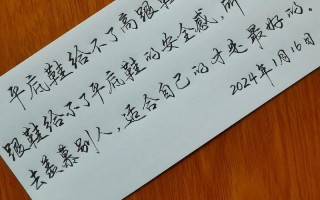 平底鞋给不了高跟鞋
跟鞋给不了平底鞋的安全感,
去羡慕别人,适合自己的才是最好的。
2024年1月16日